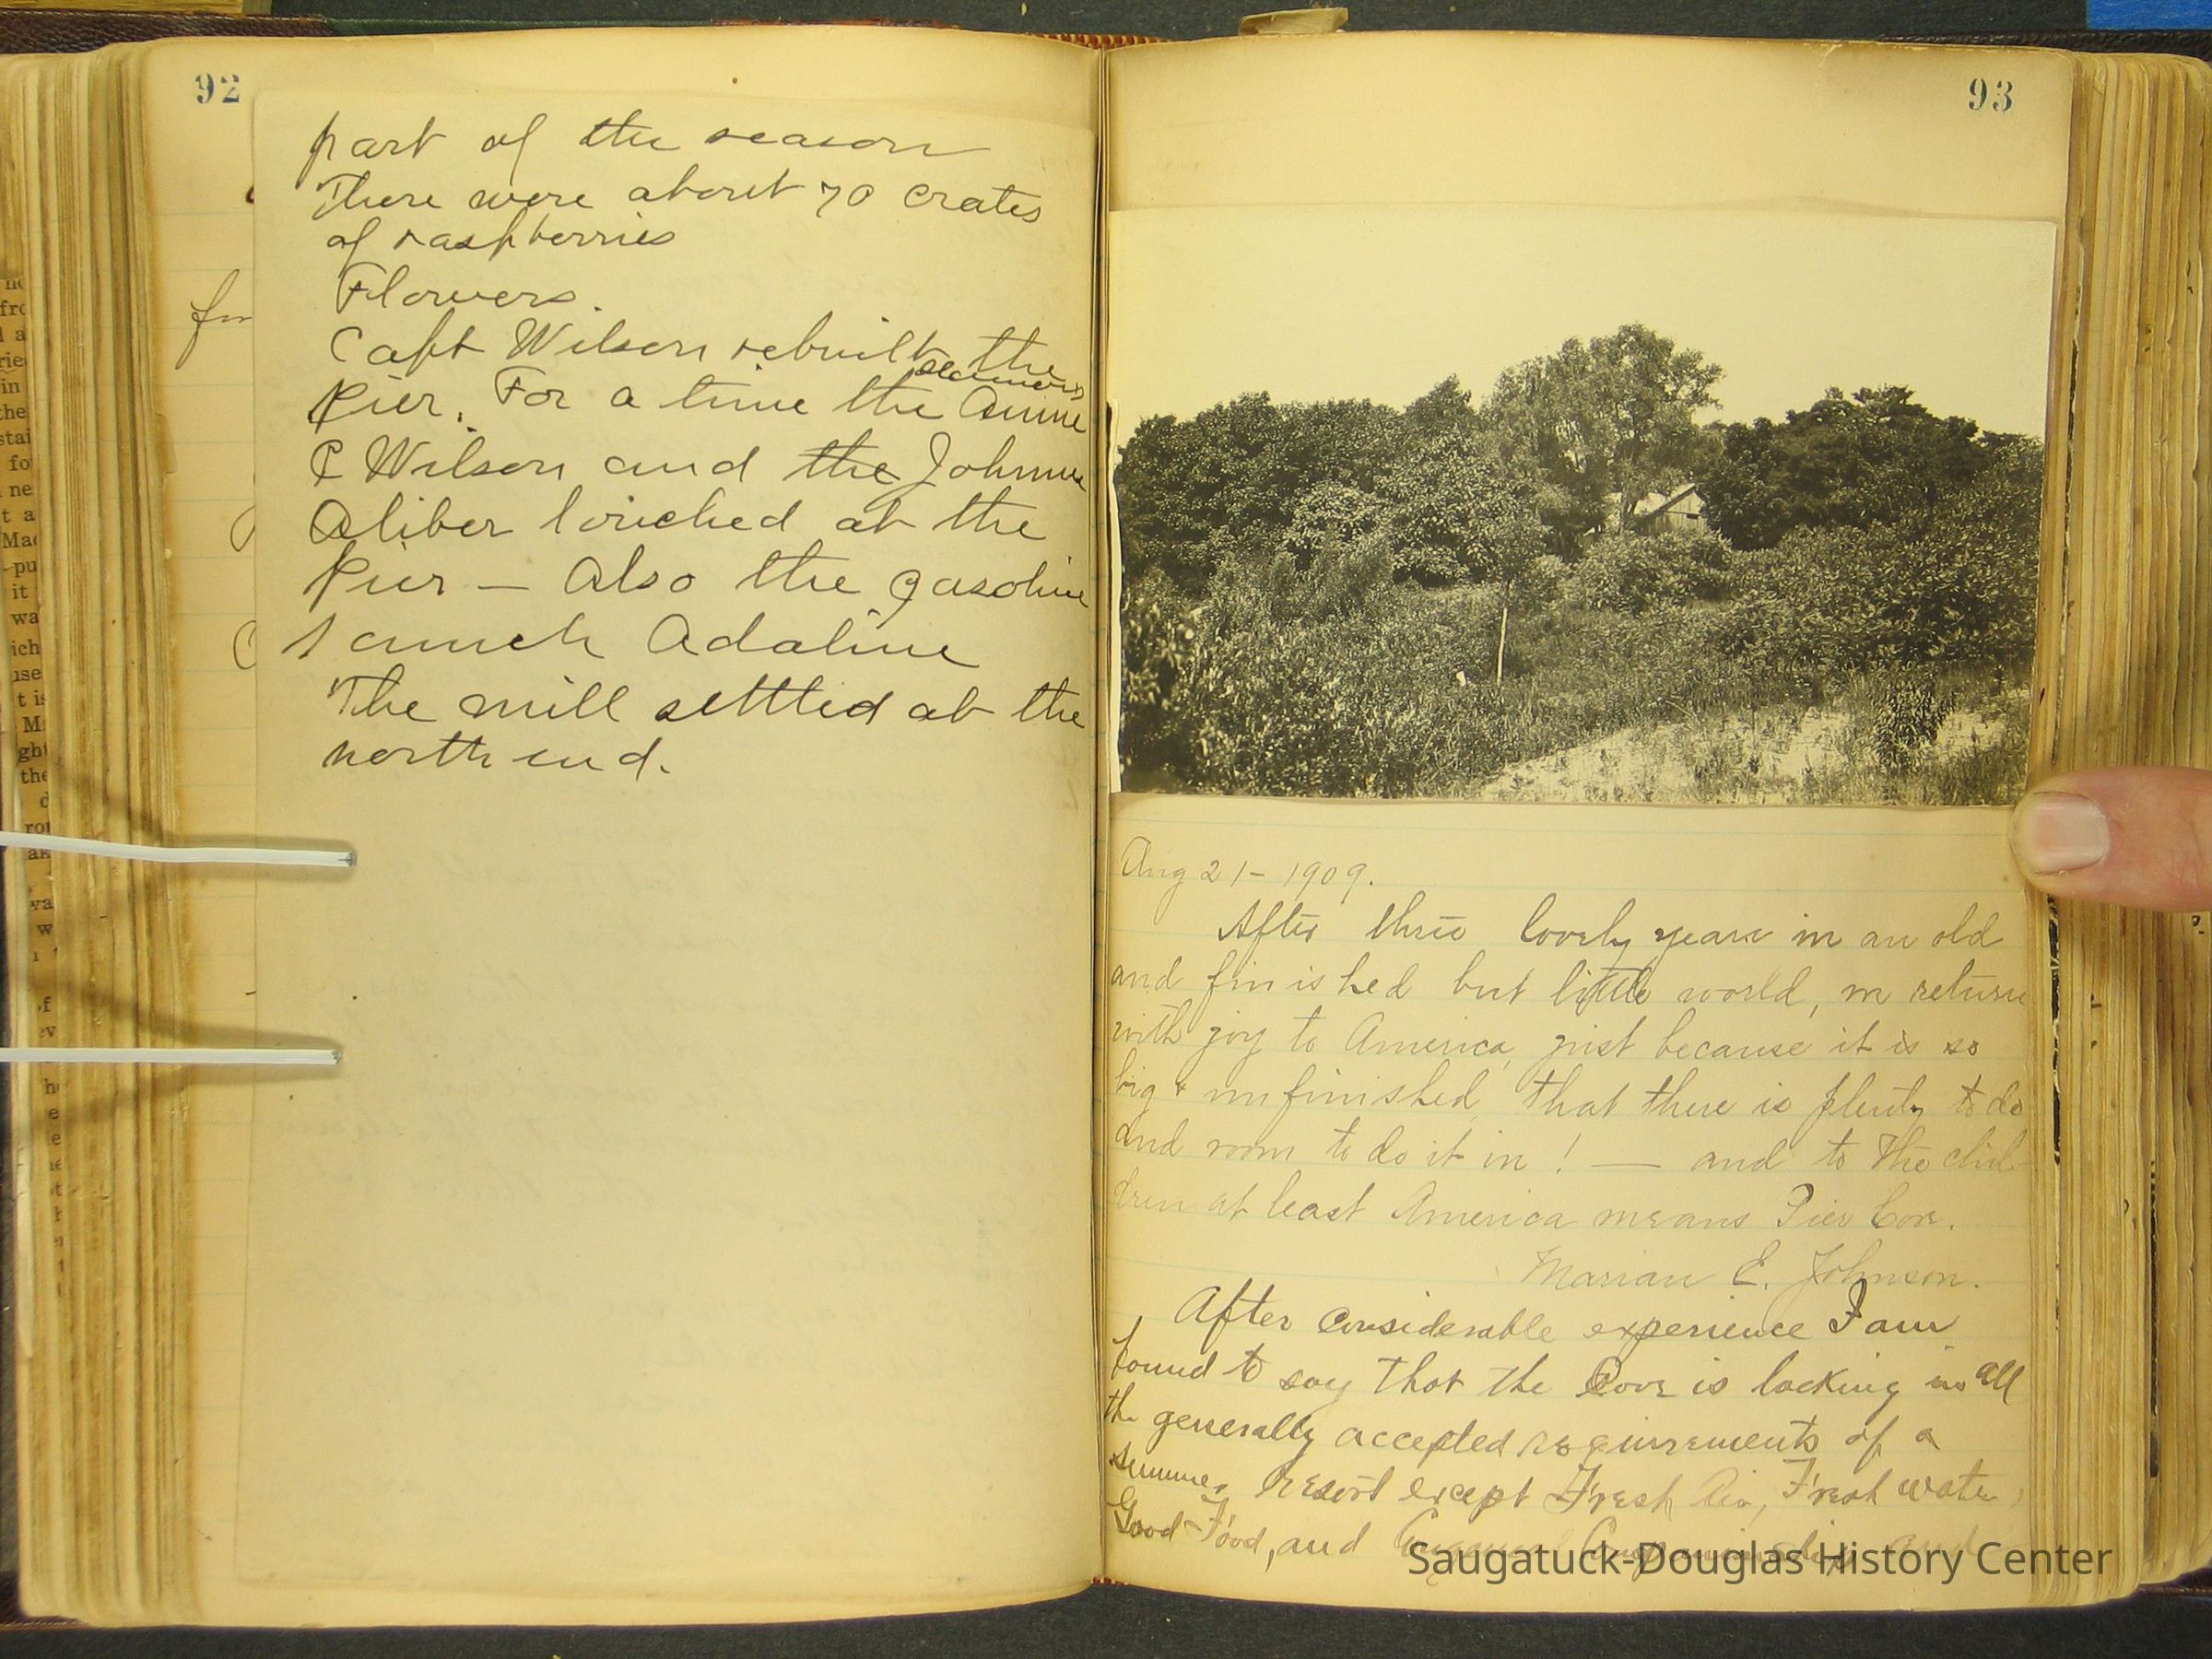 92
part of the season
There were about 70 crates
of raspberries
Flowers.
Capt Wilson rebuilt the
steamers
Pier. For a time the Annie
C Wilson and the Johnnie
Aliber touched at the
Pier — Also the gasoline
launch Adaline
The mill settled at the
north end.
93
Aug 21 - 1909.
After three lovely years in an old
and finished but little world, we return
with joy to America, just because it is so
big & unfinished, that there is plenty to do
and room to do it in! — and to the chil-
dren at least America means Pier Cove.
Marian E. Johnson.
After considerable experience I am
found to say that the Cove is lacking in all
the generally accepted requirements of a
summer resort except Fresh Air, Fresh water,
Good Food, and
Saugatuck-Douglas History Center